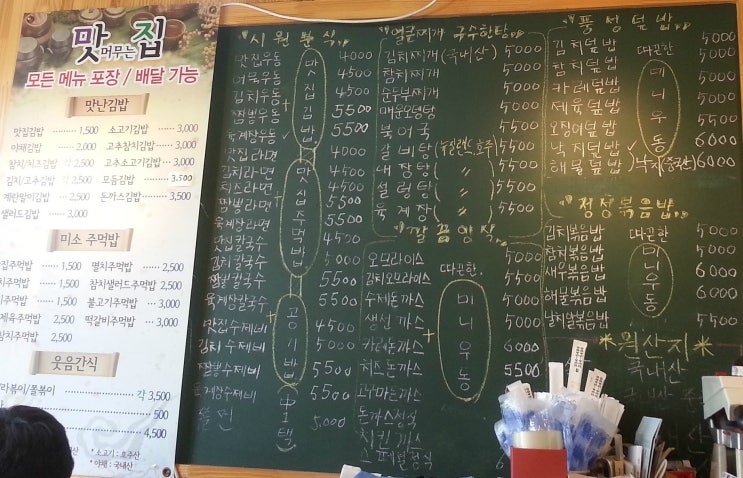 맛머무는집
모든 메뉴 포장 / 배달 가능
맛난김밥
맛집김밥 ········ 1,500 소고기김밥 ··· 3,000
야채김밥 ········ 2,000 고추참치김밥 ··· 3,000
참치/치즈김밥 각 2,500 고추소고기김밥 ··· 3,000
김치/고추김밥 각 2,500 모듬김밥 ··· 3,500
계란말이김밥 ··· 2,500 돈까스김밥 ··· 3,500
샐러드김밥 ··· 3,000
미소 주먹밥
집주먹밥 ··· 1,500 멸치주먹밥 ··· 2,500
치주먹밥 ··· 2,500 참치샐러드주먹밥 2,500
주먹밥 ··· 2,500 불고기주먹밥 ··· 3,000
제육주먹밥 2,500 떡갈비주먹밥 ··· 3,000
참치주먹밥 2,500
웃음간식
라볶이/쫄볶이 각 3,500
500
4,500
* 소고기 : 호주산
* 야채 : 국내산
시원분식
맛집우동 4000
어묵우동 4500
김치우동 4500
짬뽕우동 5500
육계장우동 5500
맛집라면 4000
김치라면 4500
치즈라면 4500
짬뽕라면 5500
육계장라면 5500
맛집칼국수 4500
김치칼국수 5000
짬뽕칼국수 5500
육계장칼국수 5500
맛집수제비 4500
김치수제비 5000
짬뽕수제비 5500
육계장수제비 5500
쫄면 5,000
+ 맛집김밥
맛집주먹밥
+ 공기밥
中 택
얼큰찌개 국수한탕
김치찌개 (국내산) 5000
참치찌개 5000
순두부찌개 5000
매운오뎅탕 5000
북어국 5000
갈비탕 (뉴질랜드, 호주) 5500
내장탕 ( 〃 ) 5500
설렁탕 ( 〃 ) 5500
육계장 ( 〃 ) 5500
깔끔양식
오므라이스 5000
김치오므라이스
수제돈까스 5000
생선까스 5000
카레돈까스 6000
치즈돈까스 5500
고구마돈까스
돈까스정식
치킨까스
스페셜정식
따끈한
+ 미니우동
풍성덮밥
김치덮밥 5000
참치덮밥 5000
카레덮밥 5000
제육덮밥 5500
오징어덮밥 5500
낙지덮밥 6000
해물덮밥 낙지(중국산) 6000
따끈한
미니우동
정성볶음밥
김치볶음밥 5000
참치볶음밥 5000
새우볶음밥 6000
해물볶음밥 6000
날치알볶음밥 5500
따끈한
미니우동
*원산지*
국내산